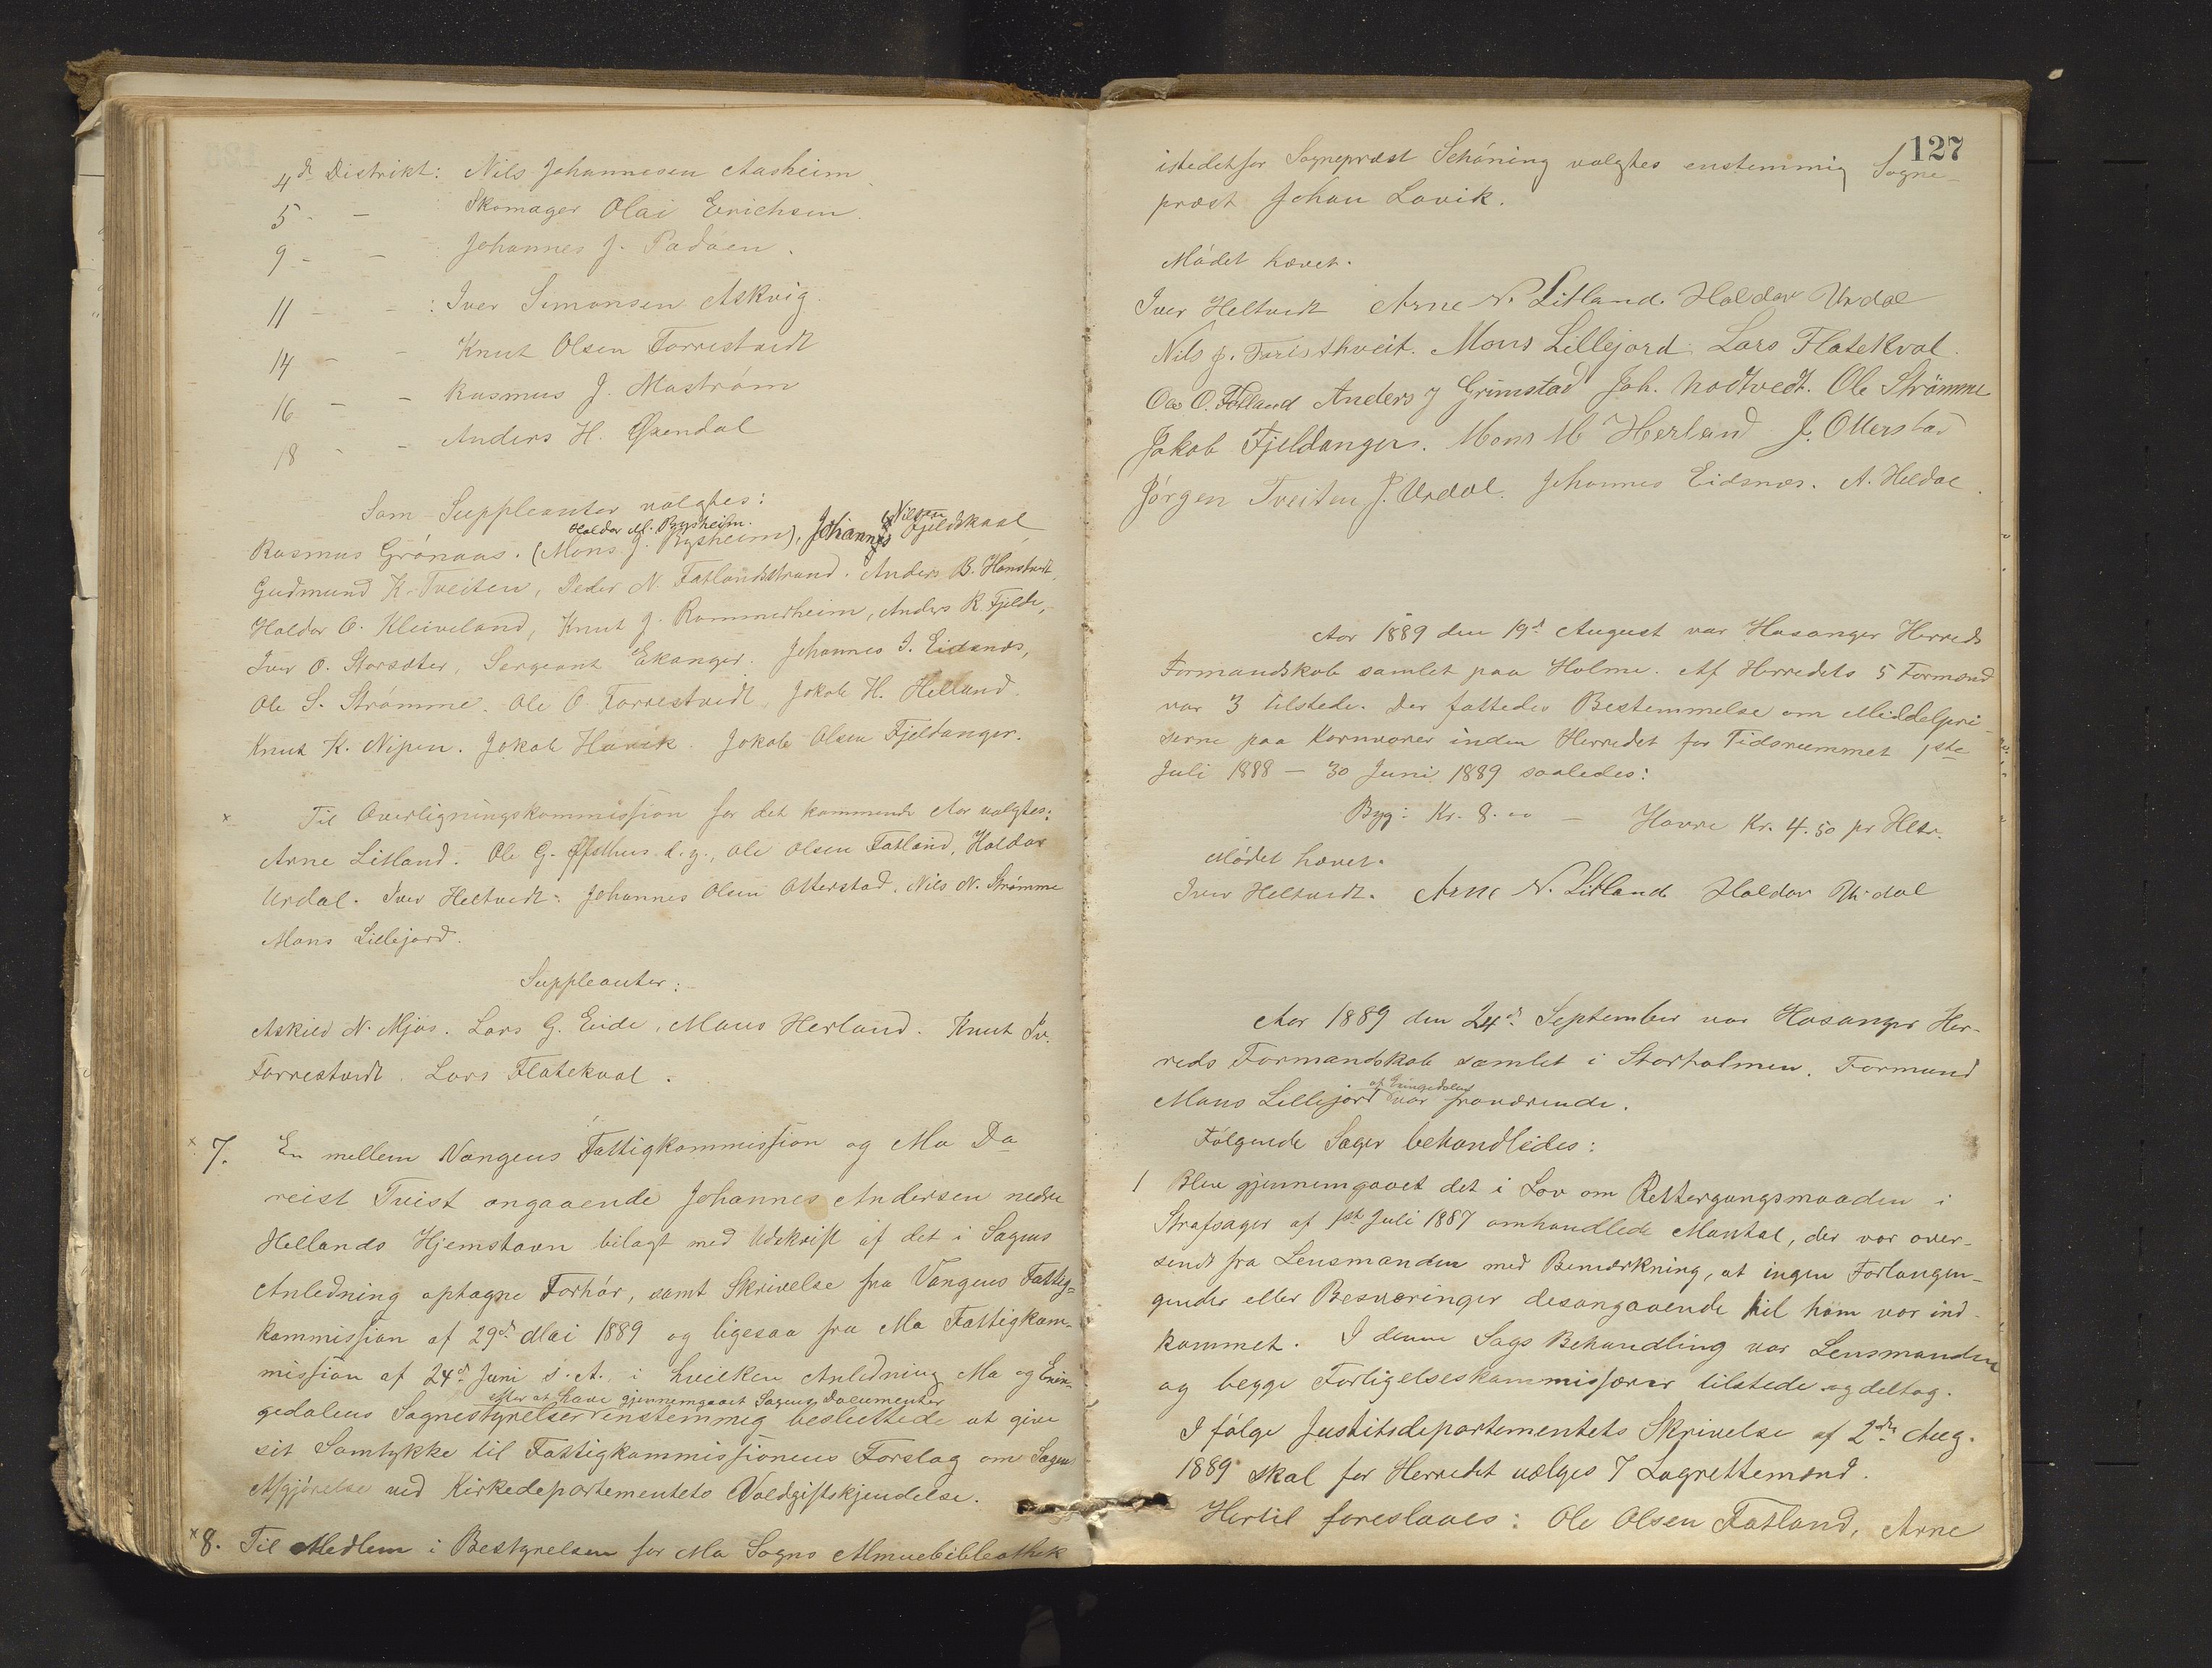 4de Distrikt: Nils Johannesen Aasheim
5 - - Skomager Olai Erichsen.
9 - - Johannes J. Padöen.
11 - - : Iver Simonsen Askvig.
14 - - Knut Olsen Forrestvedt
16 - - Rasmus J. Mostrøm
18 - - Anders H. Øxendal
Som Suppleanter valgtes:
Haldor M. Rysheim. Nilsen
Rasmus Grønaas. (Mons J. Rysheim), Johannes Fjeldskaal
Gudmund K. Tveiten, Peder N. Fatlandsstrand. Anders B. Hanstvedt,
Haldor O. Kleiveland, Knut J. Rommerheim, Anders R. Fjelde,
Iver O. Storsæter, Sergeant Ekanger. Johannes I. Eidsnæs,
Ole S. Strømme. Ole O. Forrestvedt, Jakob H. Helland.
Knut K. Nipen. Jakob Høvik. Jakob Olsen Fjeldanger.
x Til Overligningskommission for det kommende Aar valgtes:
Arne Litland. Ole G. Øfsthus d. y., Ole Olsen Fatland, Haldor
Urdal. Iver Heltvedt. Johannes Olsen Otterstad. Nils N. Strømme
Mons Lillejord.
Suppleanter:
Askild N. Mjøs. Lars G. Eide, Mons Herland. Knut Iv.
Forrestvedt. Lars Flatekval.
x 7. En mellem Vangens Fattigkommission og Mo Da
reist Tvist angaaende Johannes Andersen nedre
Hellands Hjemstavn bilagt med Udskrift af det i Sagens
Anledning optagne Forhør, samt Skrivelse fra Vangens Fattig-
kommission af 29de Mai 1889 og ligesaa fra Mo Fattigkom-
mission af 24de Juni s. A., i hvilken Anledning Mo og Enin-
efter at have gjennemgaaet Sagens Documenter
gedalens Sognestyrelser enstemmig besluttede at give
sit Samtykke til Fattigkommissionens Forslag om Sagens
Afgjørelse ved Kirkedepartementets Voldgiftskjendelse.
x 8. Til Medlem i Bestyrelsen for Mo Sogns Almuebibliothek
127
istedetfor Sognepræst Schøning valgtes enstemmig Sogne-
præst Johan Lavik.
Mødet hævet.
Iver Heltvedt Arne N. Litland. Haldor Urdal
Nils J. Faristhveit. Mons Lillejord Lars Flatekval.
Ole O. Fatland Anders J Grimstad Joh. Nodtvedt. Ole Strömme
Jakob Fjeldanger. Mons M Herland J. Otterstad
Jørgen Tveiten J. Urdal. Johannes Eidsnæs. A. Heldal.
Aar 1889 den 19de August var Hosanger Herreds
Formandskab samlet paa Holme. Af Herredets 5 Formænd
var 3 tilstede. Der fattedes Bestemmelse om Middelpri-
serne paa Kornvarer inden Herredet for Tidsrummet 1ste
Juli 1888 - 30 Juni 1889 saaledes:
Byg: Kr. 8.00 - Havre Kr. 4.50 pr Hltr.
Mødet hævet.
Iver Heltvedt. Arne N. Litland Haldor Urdal
Aar 1889 den 24de September var Hosanger Her-
reds Formandskab samlet i Storholmen. Formand
af Eningedalen
Mons Lillejord var fraværende.
Følgende Sager behandledes:
1 Blev gjennemgaaet det i Lov om Rettergangsmaaden i
Strafsager af 1ste Juli 1887 omhandlede Mantal, der var over-
sendt fra Lensmanden med Bemærkning, at ingen Forlangen-
gender eller Besværinger desangaaende til ham var ind-
kommet. I denne Sags Behandling var Lensmanden
og begge Forligelseskommissærer tilstede og deltog.
I følge Justitsdepartementets Skrivelse af 2den Aug.
1889 skal for Herredet vælges 7 Lagrettemænd.
Hertil foreslaaes: Ole Olsen Fatland, Arne